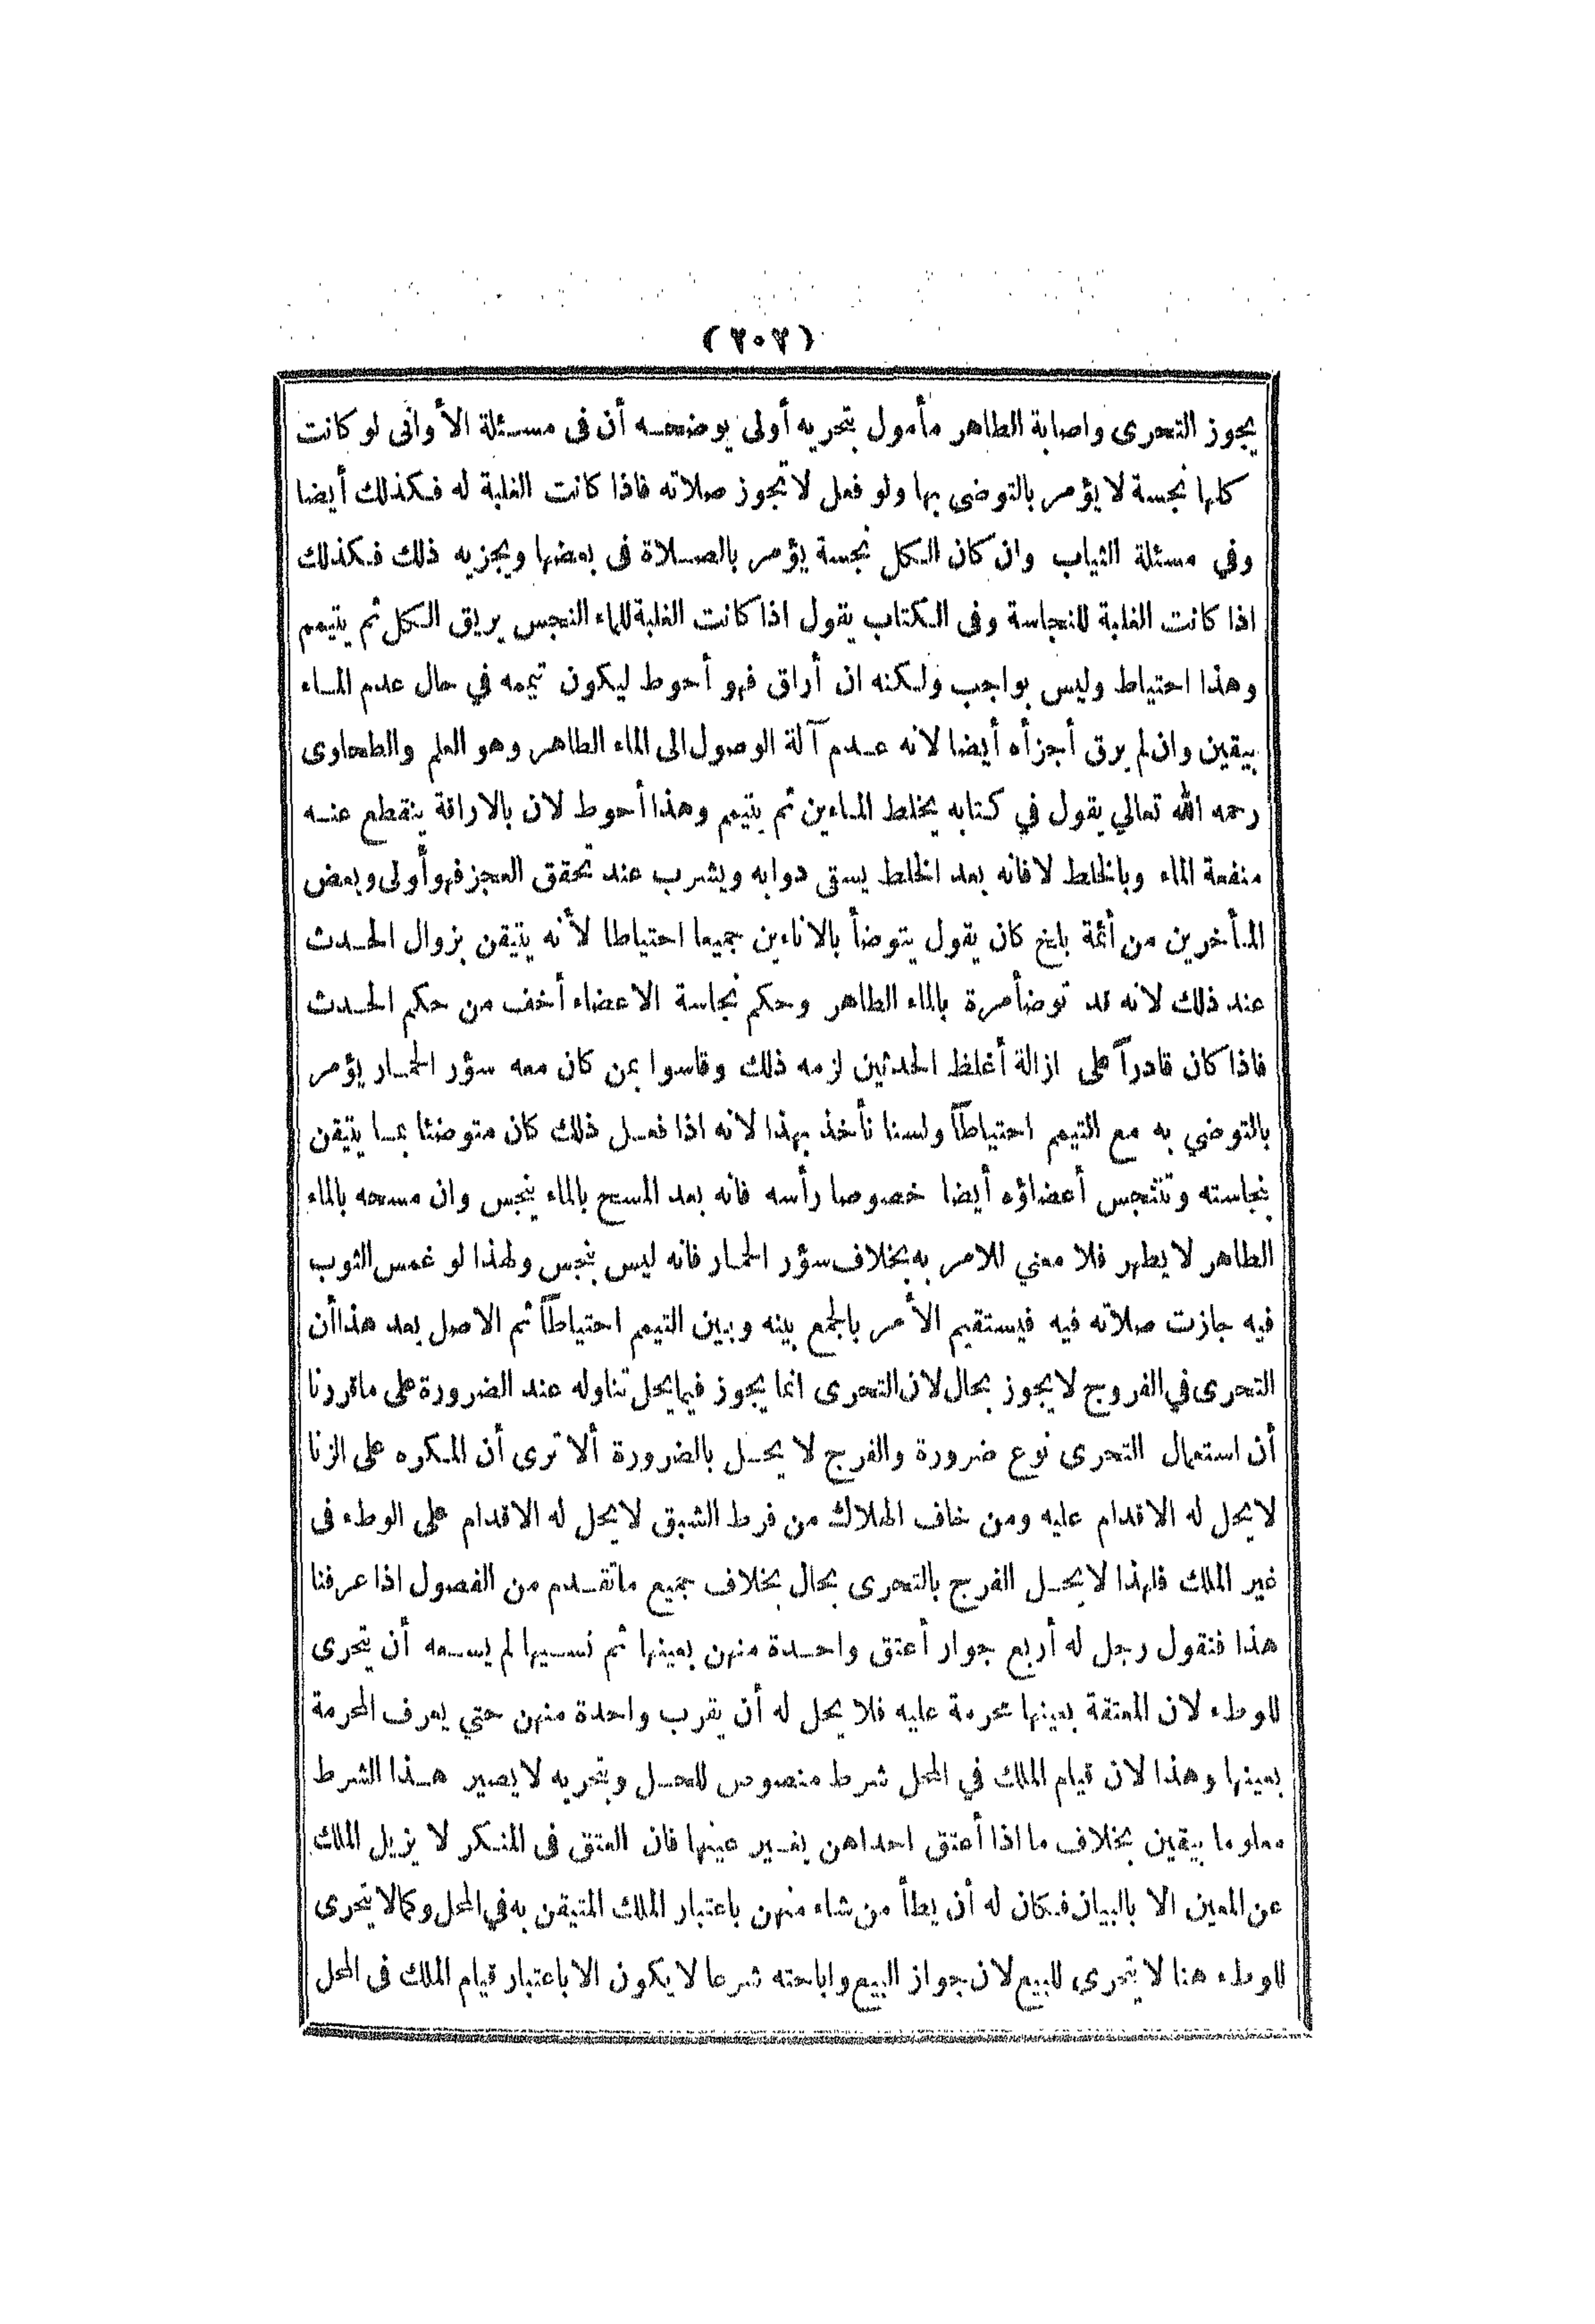 (٢٠٢)
يجوز التحرى واصابة الطاهر مأمول بتحريه أولى يوضحـه أن فى مسـئلة الأ وانى لو كانت
كلها نجسة لا يؤمر بالتوضى بها ولو فعل لا تجوز صلاته فاذا كانت الغلبة له فـكذلك أيضا
وفي مسئلة الثياب وان كان الـكل نجسة يؤمر بالصـلاة فى بعضها ويجزيه ذلك فـكذلك
اذا كانت الغلبة للنجاسة وفى الـكتاب يقول اذا كانت الغلبة للماء النجس يريق الـكل ثم يتيمم
وهذا احتياط وليس بواجب ولـكنه ان أراق فهو أحوط ليكون تيممه في حال عدم المـاء
بيقين وان لم يرق أجزأه أيضا لانه عـدم آلة الوصول الى الماء الطاهر وهو العلم والطحاوى
رحمه الله تعالي يقول في كتابه يخلط المـاءين ثم يتيمم وهذا أحوط لان بالاراقة ينقطع عنـه
منفعة الماء وبالخلط لا فانه بعد الخلط يسقى دوابه ويشرب عند تحقق العجز فهو أولى وبعض
المـتأخرين من أئمة بلخ كان يقول يتوضأ بالاناءين جميعا احتياطا لأنه يتيقن بزوال الحـدث
عند ذلك لانه قد توضأ مرة بالماء الطاهر وحكم نجاسة الاعضاء أخف من حكم الحـدث
فاذا كان قادراً على ازالة أغلظ الحدثين لزمه ذلك وقاسوا بمن كان معه سؤر الحمـار يؤمر
بالتوضي به مع التيمم احتياطاً ولسنا نأخذ بهذا لانه اذا فعـل ذلك كان متوضئا بمـا يتيقن
بنجاسته وتتنجس أعضاؤه أيضا خصوصا رأسه فانه بعد المسح بالماء ينجس وان مسحه بالماء
الطاهر لا يطهر فلا معني للامر به بخلاف سؤر الحمـار فانه ليس بنجس ولهذا لو غمس الثوب
فيه جازت صلاته فيه فيستقيم الأمر بالجمع بينه وبين التيمم احتياطاً ثم الاصل بعد هذا أن
التحرى في الفروج لا يجوز بحال لان التحرى انما يجوز فيما يحل تناوله عند الضرورة على ما قررنا
أن استعمال التحرى نوع ضرورة والفرج لا يحـل بالضرورة ألا ترى أن المـكره على الزنا
لا يحل له الاقدام عليه ومن خاف الهلاك من فرط الشبق لا يحل له الاقدام على الوطء فى
غير الملك فلهذا لا يحـل الفرج بالتحرى بحال بخلاف جميع ما تقـدم من الفصول اذا عرفنا
هذا فنقول رجل له أربع جوار أعتق واحـدة منهن بعينها ثم نسـيها لم يسـعه أن يتحرى
للوطء لان المعتقة بعينها محرمة عليه فلا يحل له أن يقرب واحدة منهن حتي يعرف المحرمة
بعينها وهذا لان قيام الملك في المحل شرط منصوص للحـل وبتحريه لا يصير هـذا الشرط
معلوما بيقين بخلاف ما اذا أعتق احداهن بغـير عينها فان العتق فى المنـكر لا يزيل الملك
عن المعين الا بالبيان فـكان له أن يطأ من شاء منهن باعتبار الملك المتيقن به في المحل وكما لا يتحرى
للوطء هنا لا يتحرى للبيع لان جواز البيع واباحته شرعا لا يكون الا باعتبار قيام الملك فى المحل